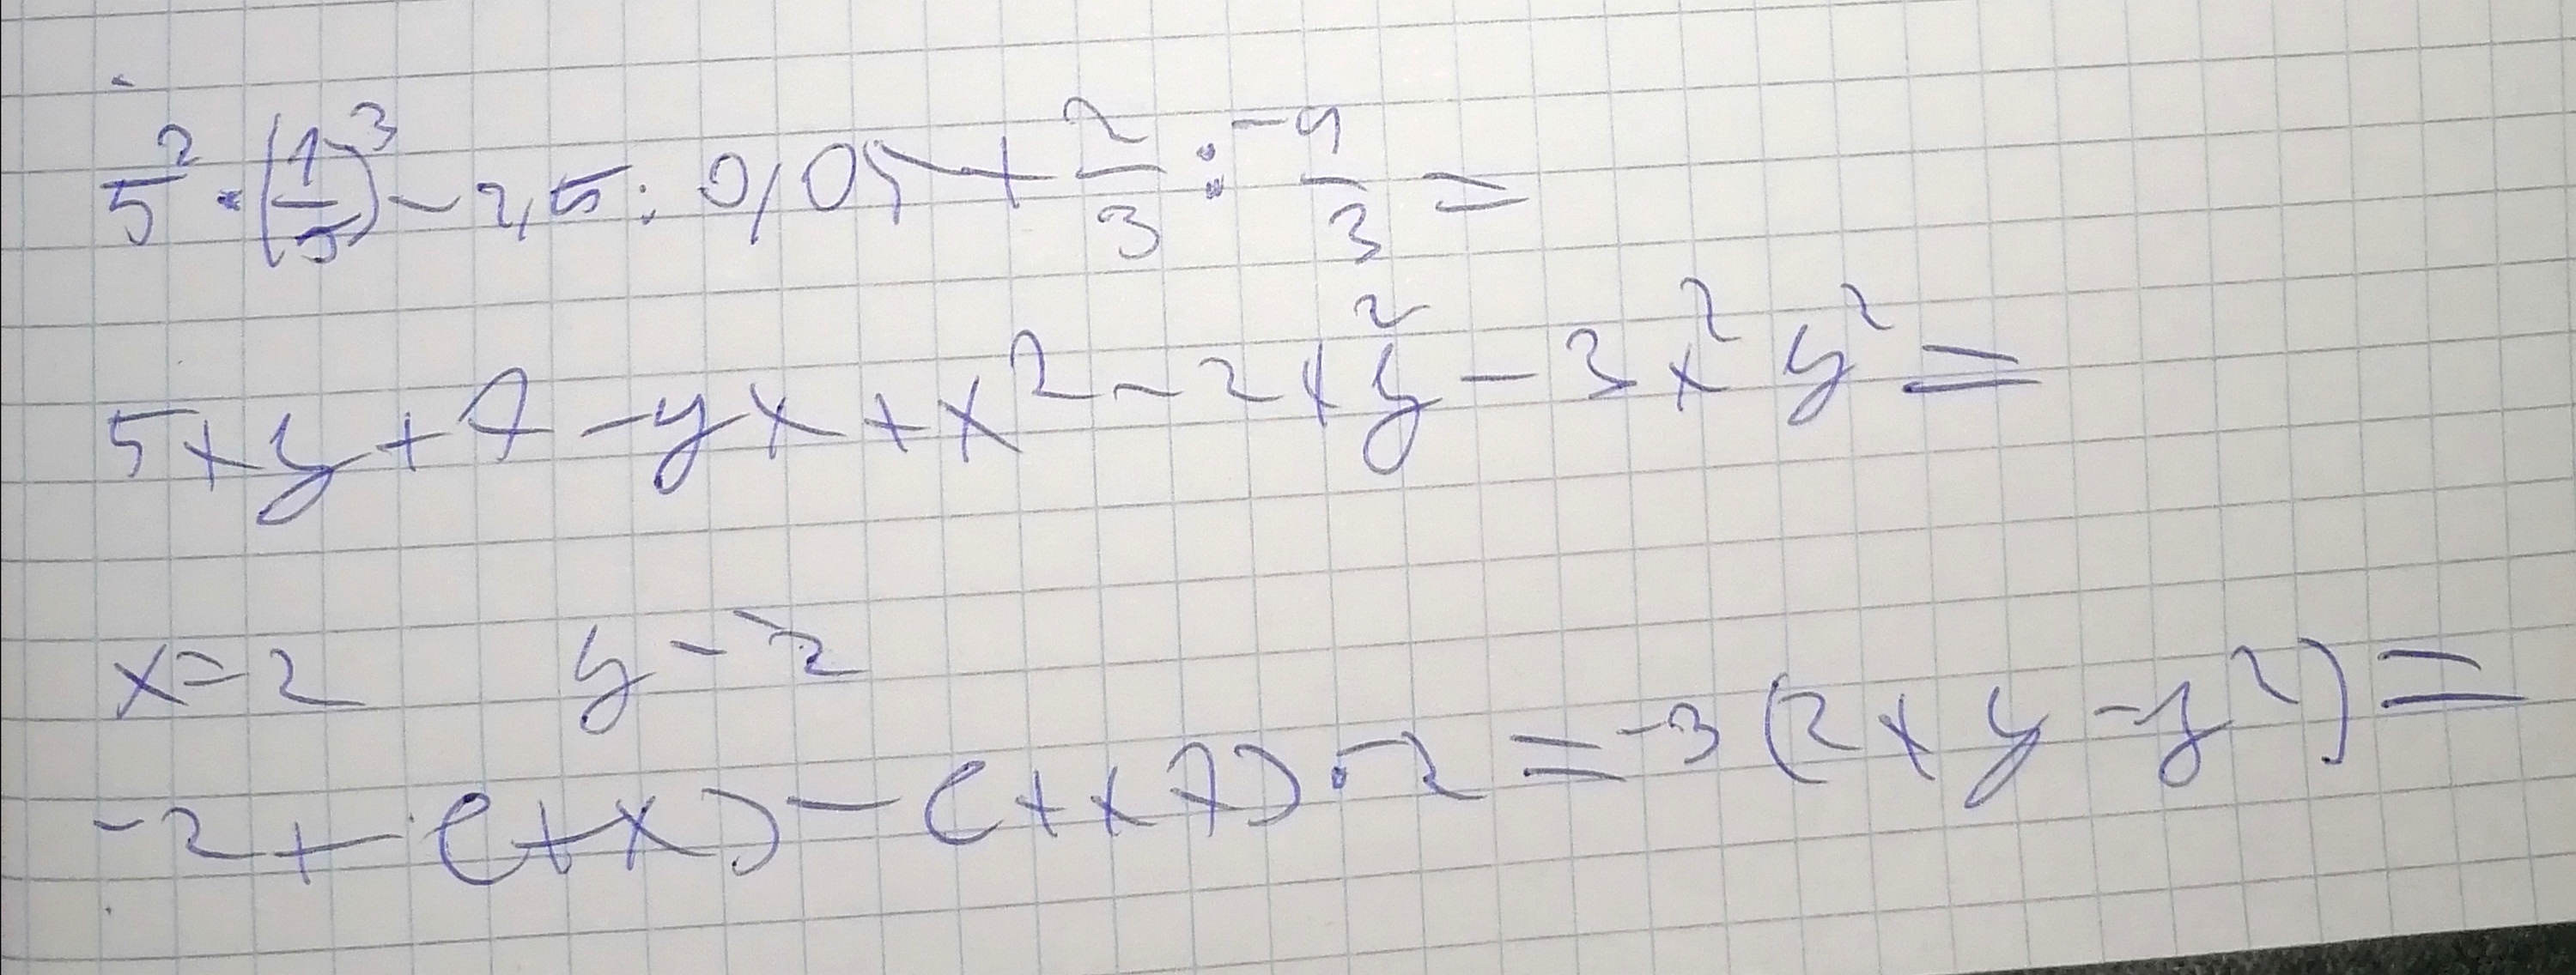 5² · (1/5)³ - 2,5 : 0,05 + 2/3 : -9/3 =
5xy + 7 - yx + x² - 2xy² - 3x²y² =
x = 2 y - -2
-2 + (+x) - (+x7) · -2 = -3 (2xy - y²) =